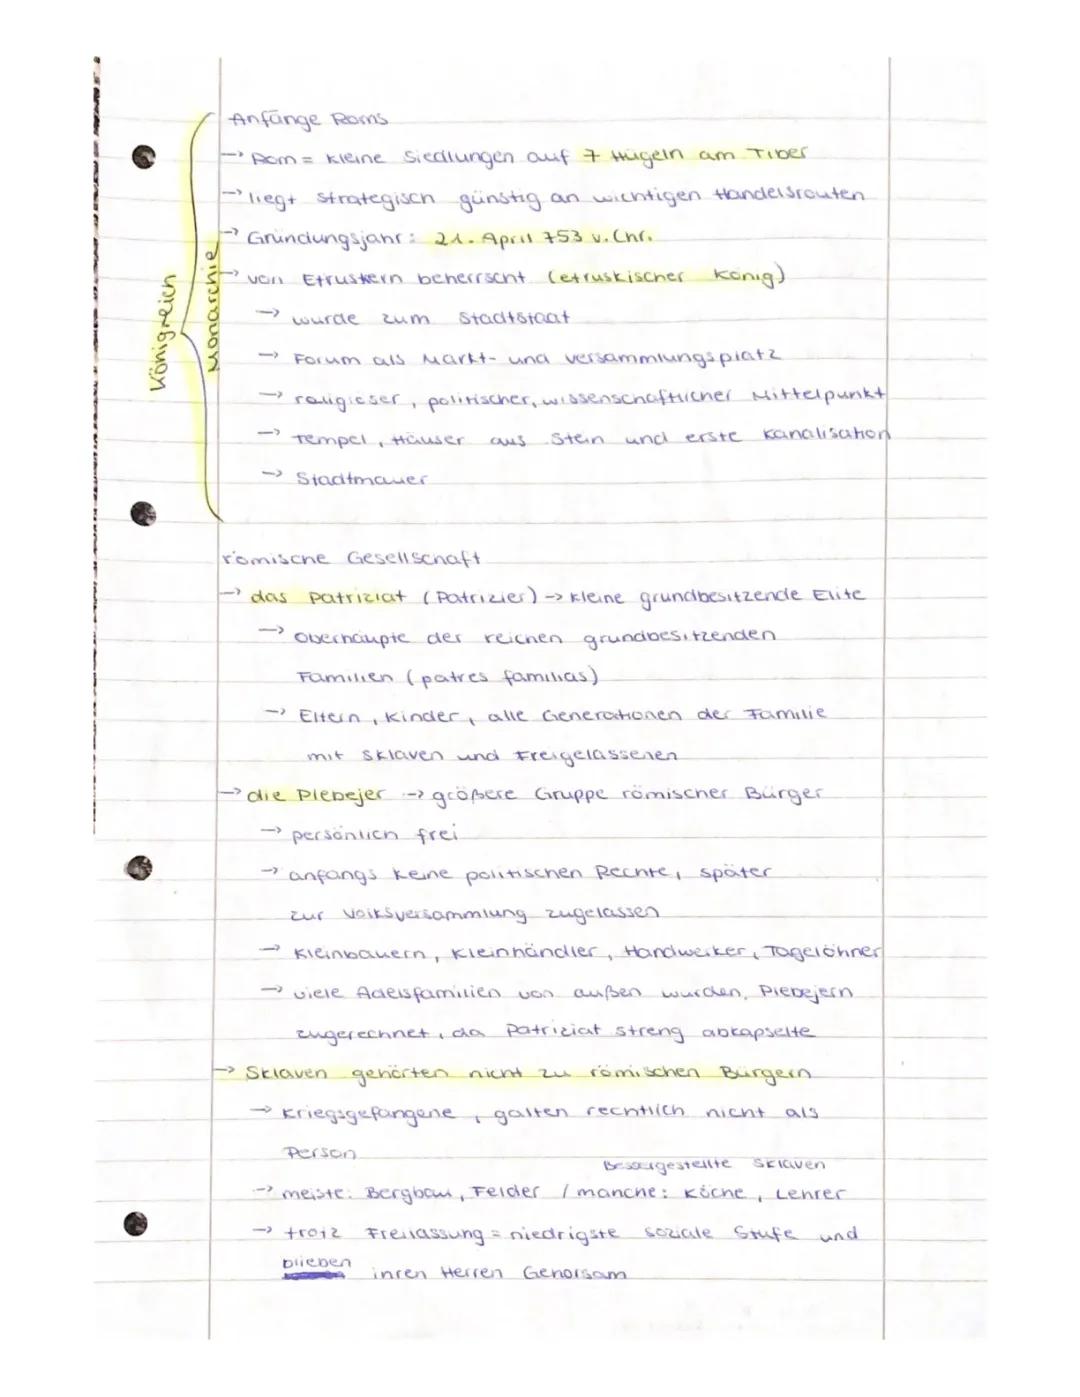 Anfänge Roms
→ Rom = kleine Siedlungen auf 7 Hügeln am Tiber
→ liegt strategisch günstig an wichtigen Handelsrouten
→ Gründungsjahr: 21. April 753 v. Chr.
→ von Etruskern beherrscht (etruskischer König)
→ wurde zum Stadtstaat
→ Forum als Markt- und Versammlungsplatz
→ religiöser, politischer, wissenschaftlicher Mittelpunkt
→ Tempel, Häuser aus Stein und erste Kanalisation
→ Stadtmauer
Königreich
Monarchie
römische Gesellschaft
→ das Patriziat (Patrizier) → kleine grundbesitzende Elite
→ Oberhäupte der reichen grundbesitzenden
Familien (patres familias)
→ Eltern, Kinder, alle Generationen der Familie
mit Sklaven und Freigelassenen
→ die Plebejer → größere Gruppe römischer Bürger
→ persönlich frei
→ anfangs keine politischen Rechte, später
zur Volksversammlung zugelassen
→ Kleinbauern, Kleinhändler, Handwerker, Tagelöhner
→ viele Adelsfamilien von außen wurden Plebejern
zugerechnet, da Patriziat streng abkapselte
→ Sklaven gehörten nicht zu römischen Bürgern
→ Kriegsgefangene, galten rechtlich nicht als
Person
Bessergestellte Sklaven
→ meiste: Bergbau, Felder / manche: Köche, Lehrer
→ trotz Freilassung = niedrigste soziale Stufe und
blieben ihren Herren Gehorsam